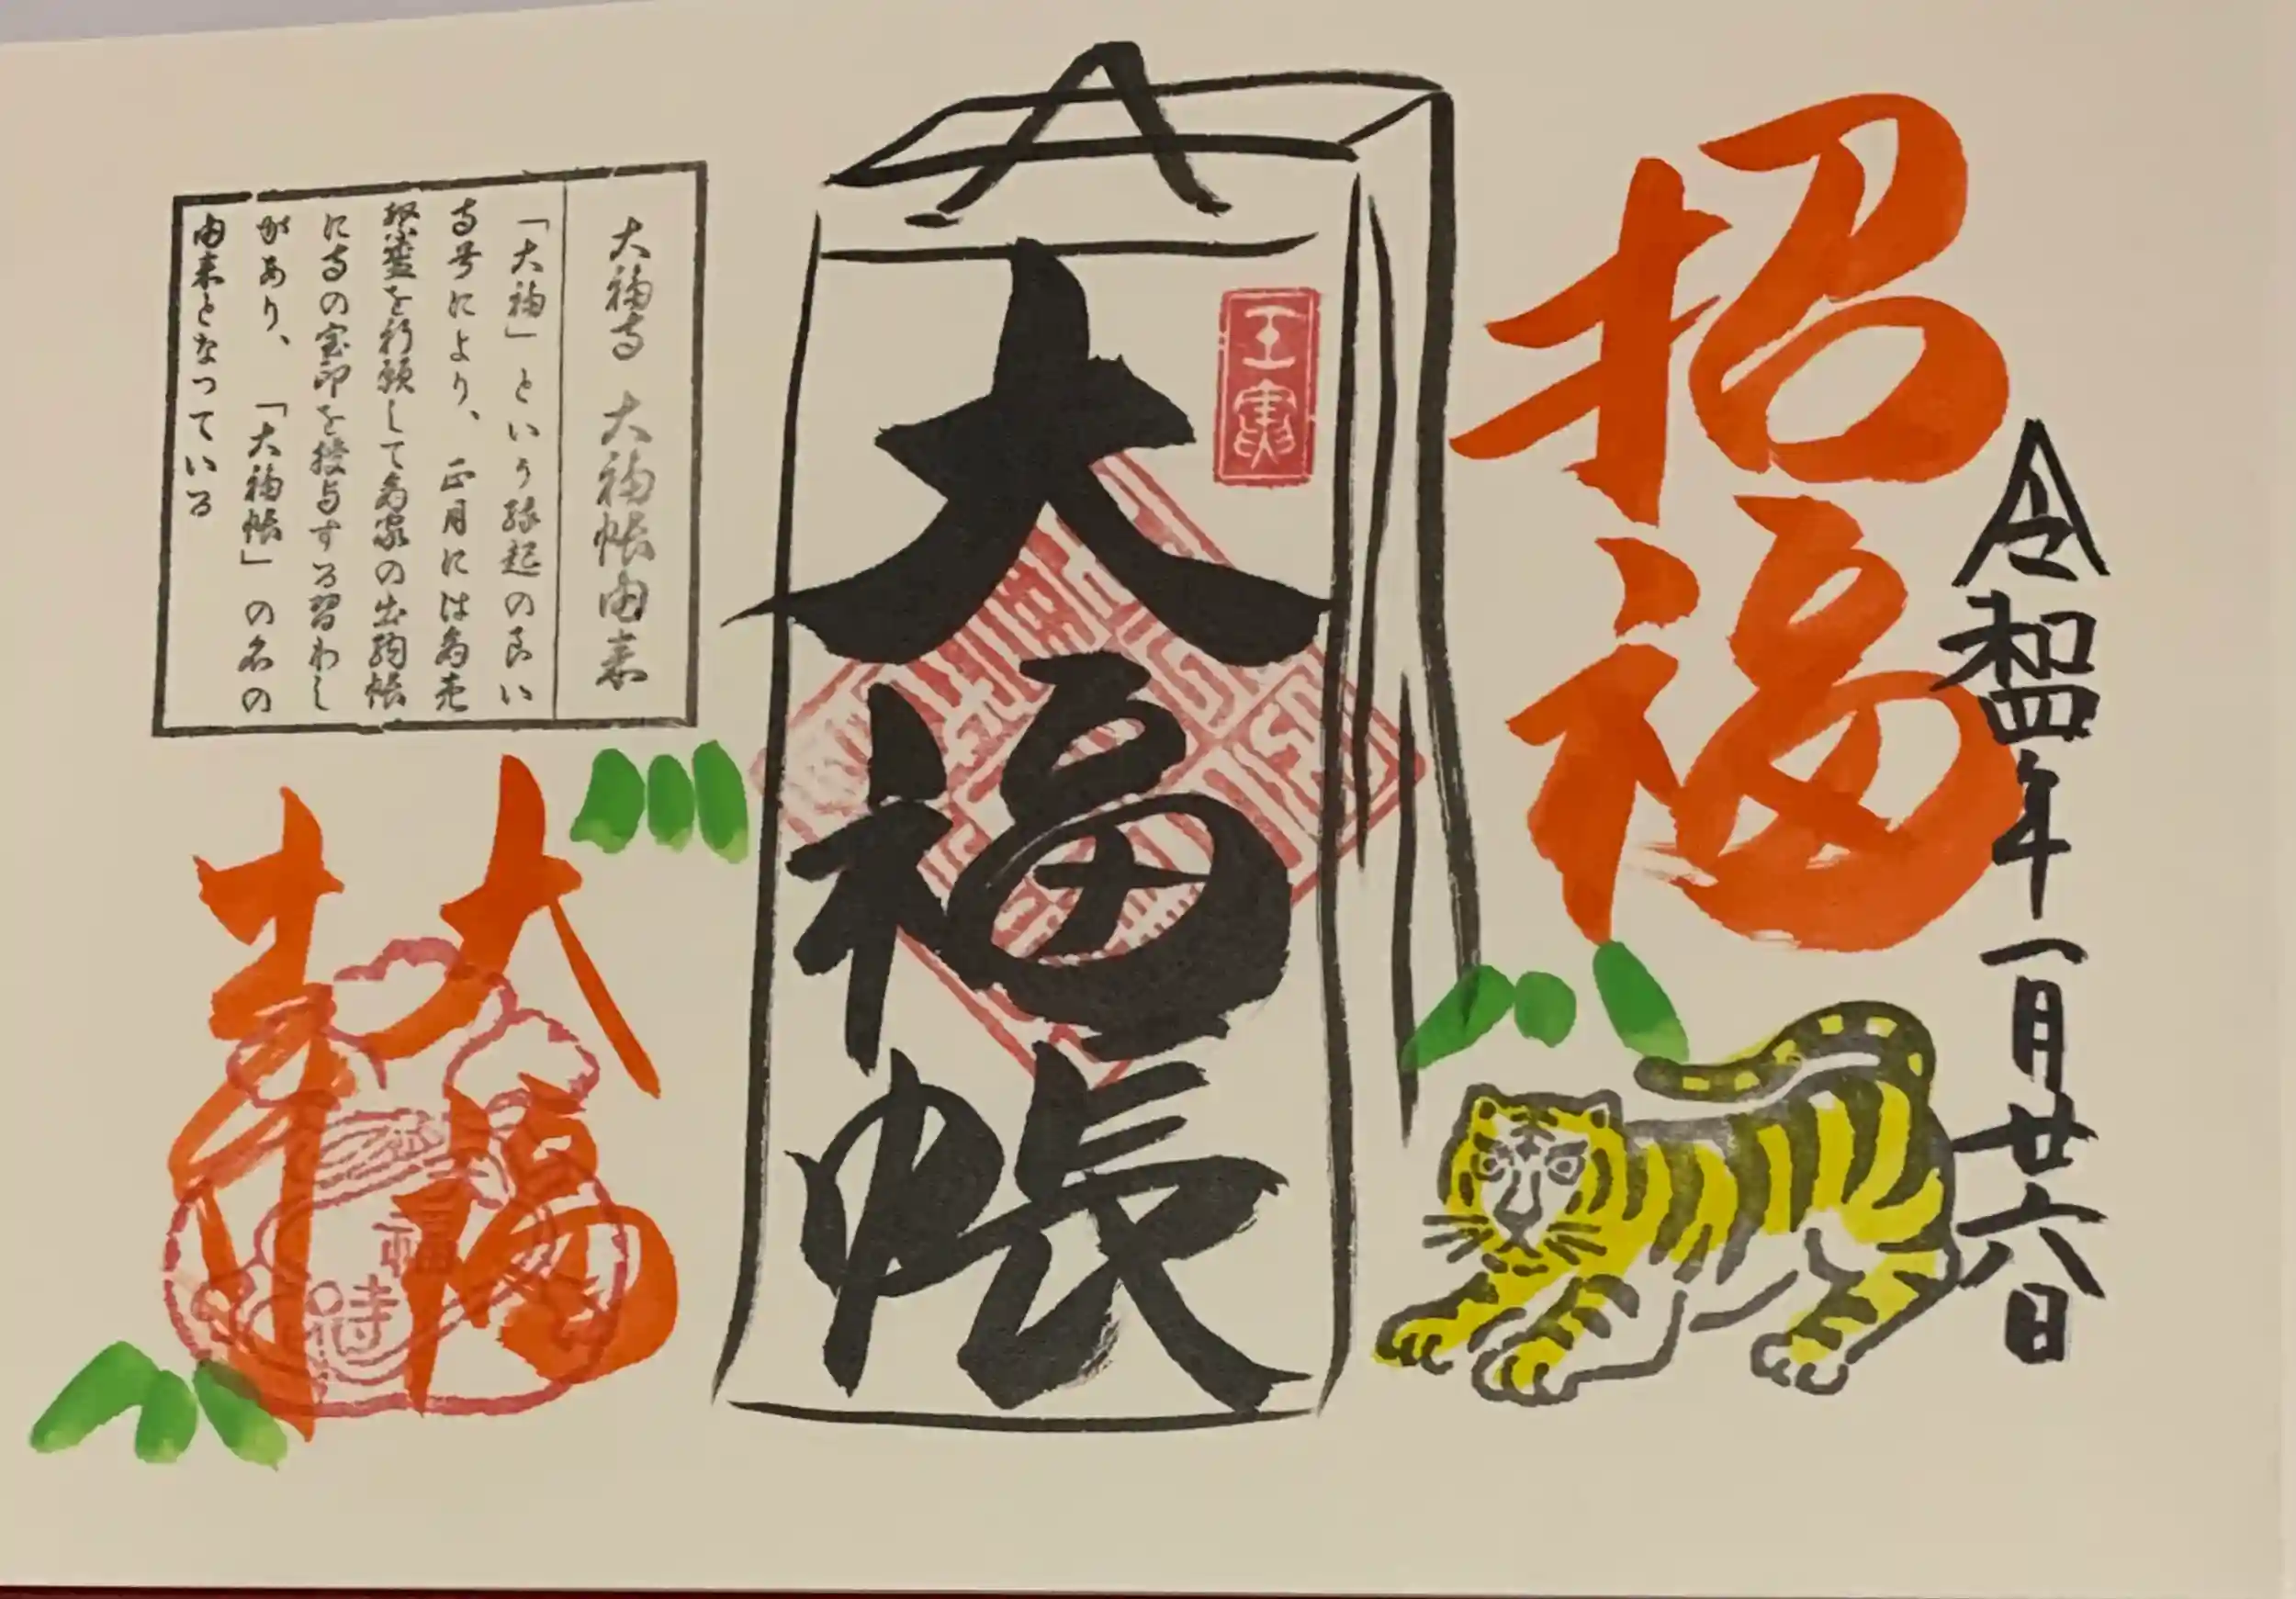 令和四年一月廿六日
招福
大福帳
大福寺 大福帳由来
「大福」という縁起の良い
寺号により、正月には商売
繁盛を祈願して商家の出納帳
に寺の宝印を授与する習わし
があり、「大福帳」の名の
由来となっている
大福
寺
福
寺